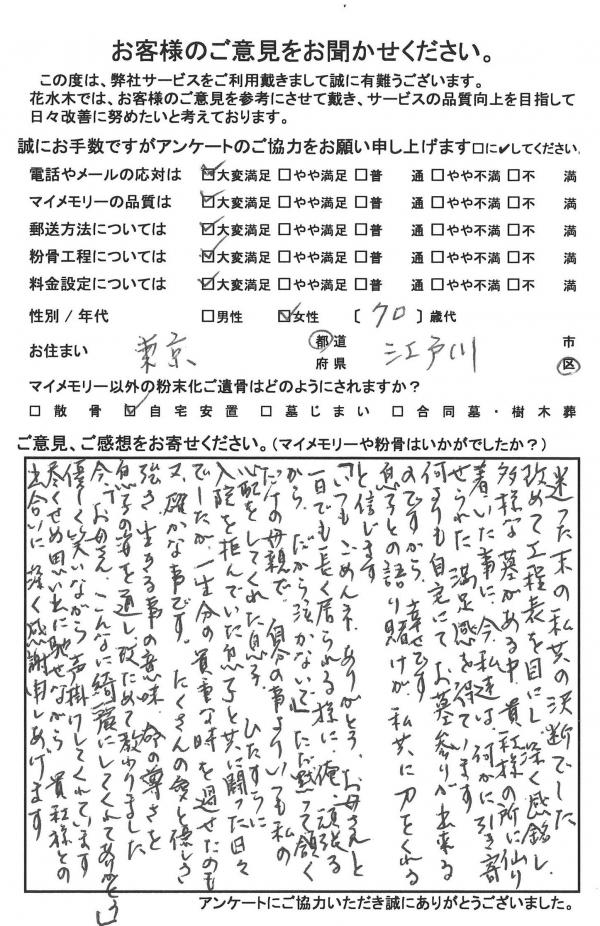 お客様のご意見をお聞かせください。
この度は、弊社サービスをご利用戴きまして誠に有難うございます。
花水木では、お客様のご意見を参考にさせて戴き、サービスの品質向上を目指して
日々改善に努めたいと考えております。
誠にお手数ですがアンケートのご協力をお願い申し上げます□に✔してください。
電話やメールの応対は ☑大変満足 □やや満足 □普 通 □やや不満 □不 満
マイメモリーの品質は ☑大変満足 □やや満足 □普 通 □やや不満 □不 満
郵送方法については ☑大変満足 □やや満足 □普 通 □やや不満 □不 満
粉骨工程については ☑大変満足 □やや満足 □普 通 □やや不満 □不 満
料金設定については ☑大変満足 □やや満足 □普 通 □やや不満 □不 満
性別 / 年代 □男性 ☑女性 〔 70 〕歳代
お住まい 東京 都道府県 江戸川 市区
マイメモリー以外の粉末化ご遺骨はどのようにされますか？
□ 散 骨 ☑ 自宅安置 □ 墓じまい □ 合同墓・樹木葬
ご意見、ご感想をお寄せください。（マイメモリーや粉骨はいかがでしたか？）
迷った末の私共の決断でした
改めて工程表を目にし、深く感銘し、
多様な墓がある中、貴社様の所に仙り
着いた事に、今、私達は、何かに引き寄
せられた満足感を得ています
何よりも自宅にてお墓参りが出来る
のですから、幸せです
息子との語り賭けが、私共に力をくれる
と信じます
「いつもごめんネ、ありがとう、お母さんと
一日でも長く居られる様に、俺、頑張る
から、だから泣かないで」ただ黙って頷く
だけの母親で、自分の事よりいつも私の
心配をしてくれた息子、ひたすらに
入院を拒んでいた息子と共に闘った日々
でしたが、一生分の貴重な時を過せたのも
又、確かな事です。たくさんの愛と優しさ
強き生きる事の意味、命の尊さを
息子の姿を通し、改ためて教わりました
今、「お母さん、こんなに綺麗にしてくれてありがとう」
優しく笑いながら声掛けしてくれています
尽くせぬ思い出に馳せながら、貴社様との
出合いに深く感謝申しあげます
アンケートにご協力いただき誠にありがとうございました。